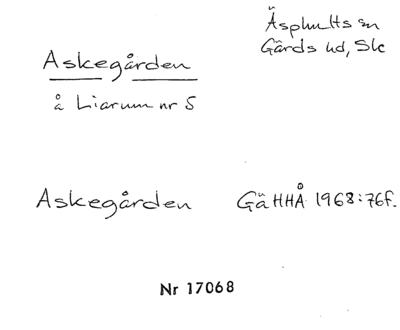 Äsphults sn
Gärds hd, Sk
Askegården
å Liarum nr 5
Askegården GäHHÅ 1968:76f.
Nr 17068